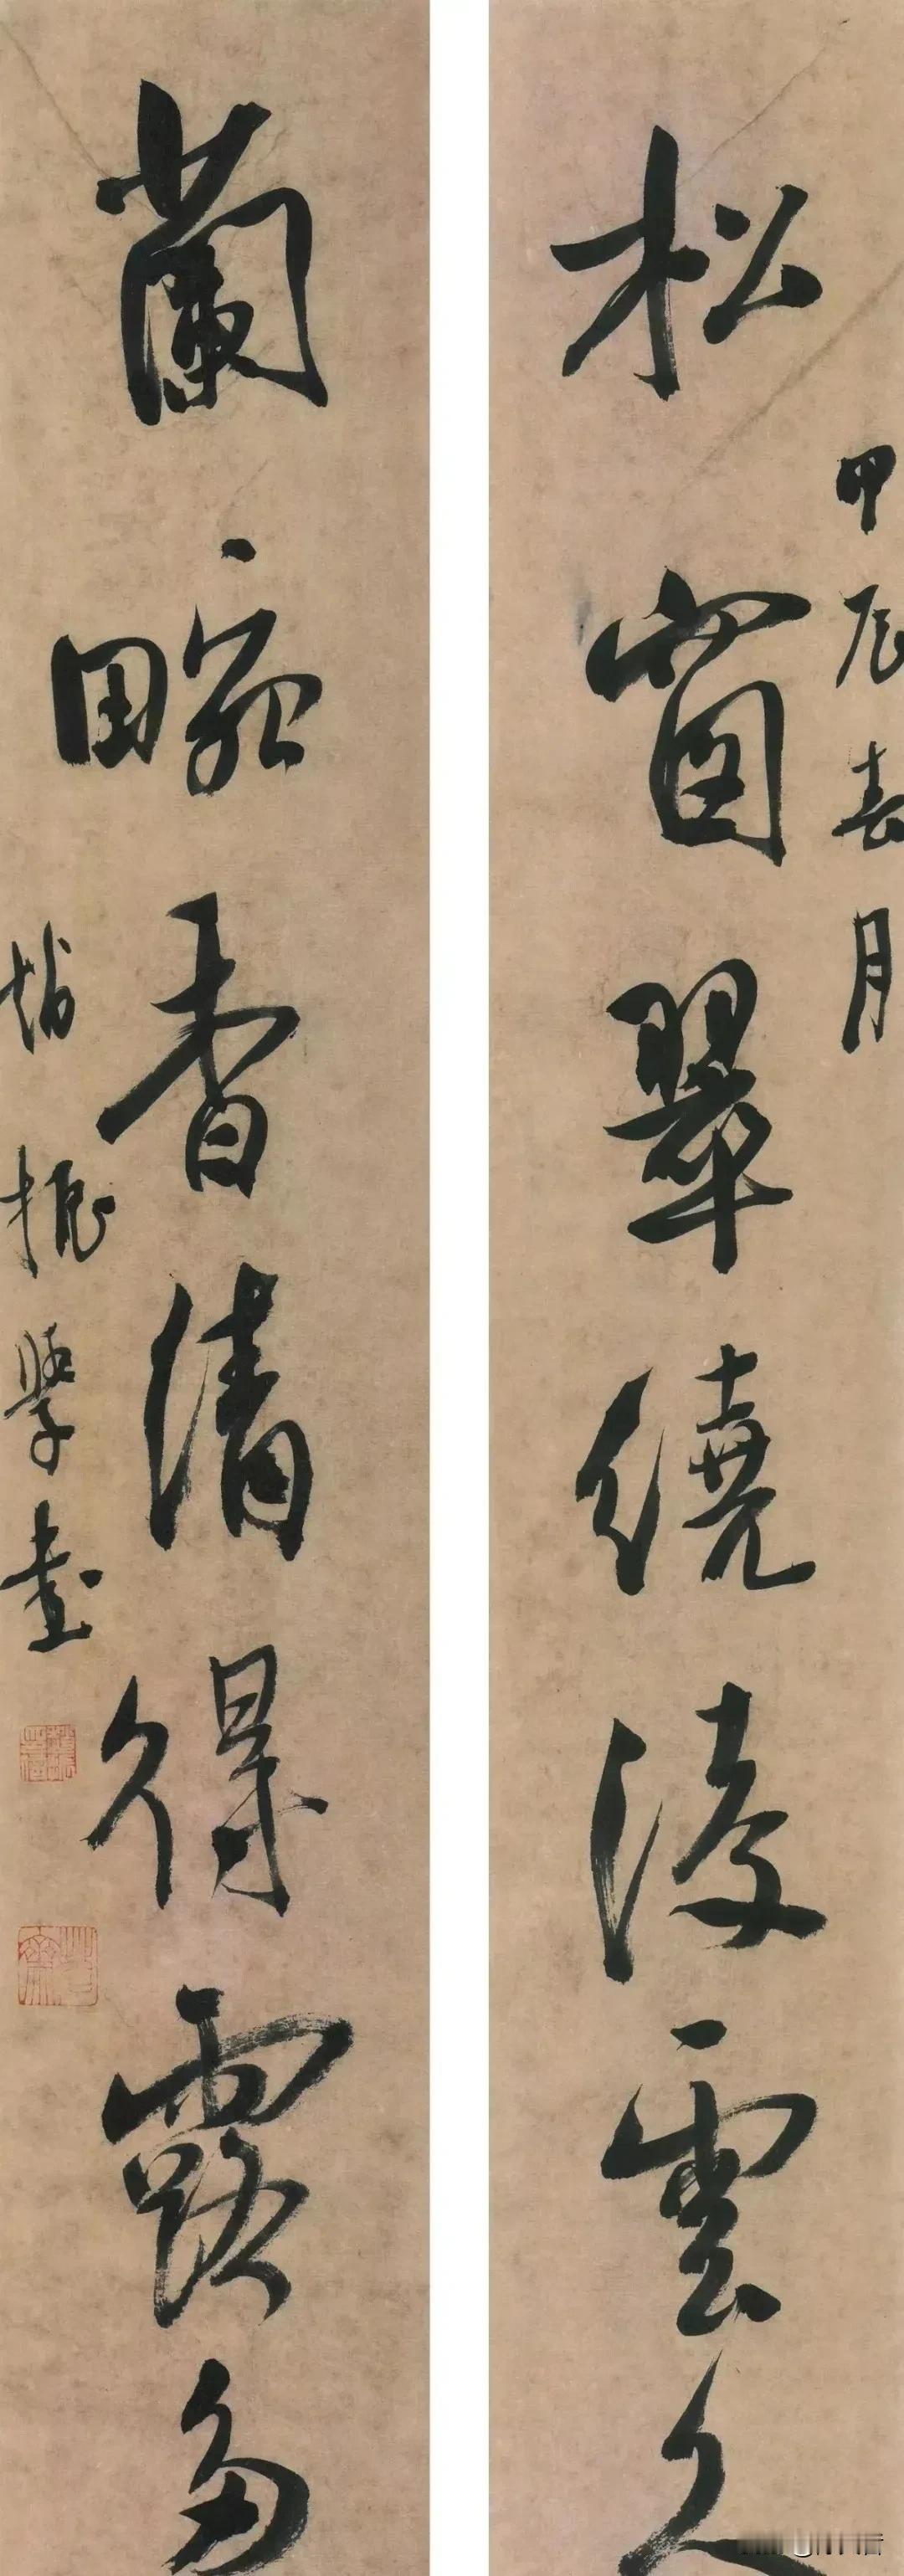 甲辰春月
松窗翠繞凌雲久
蘭畹香清得露多
振學書